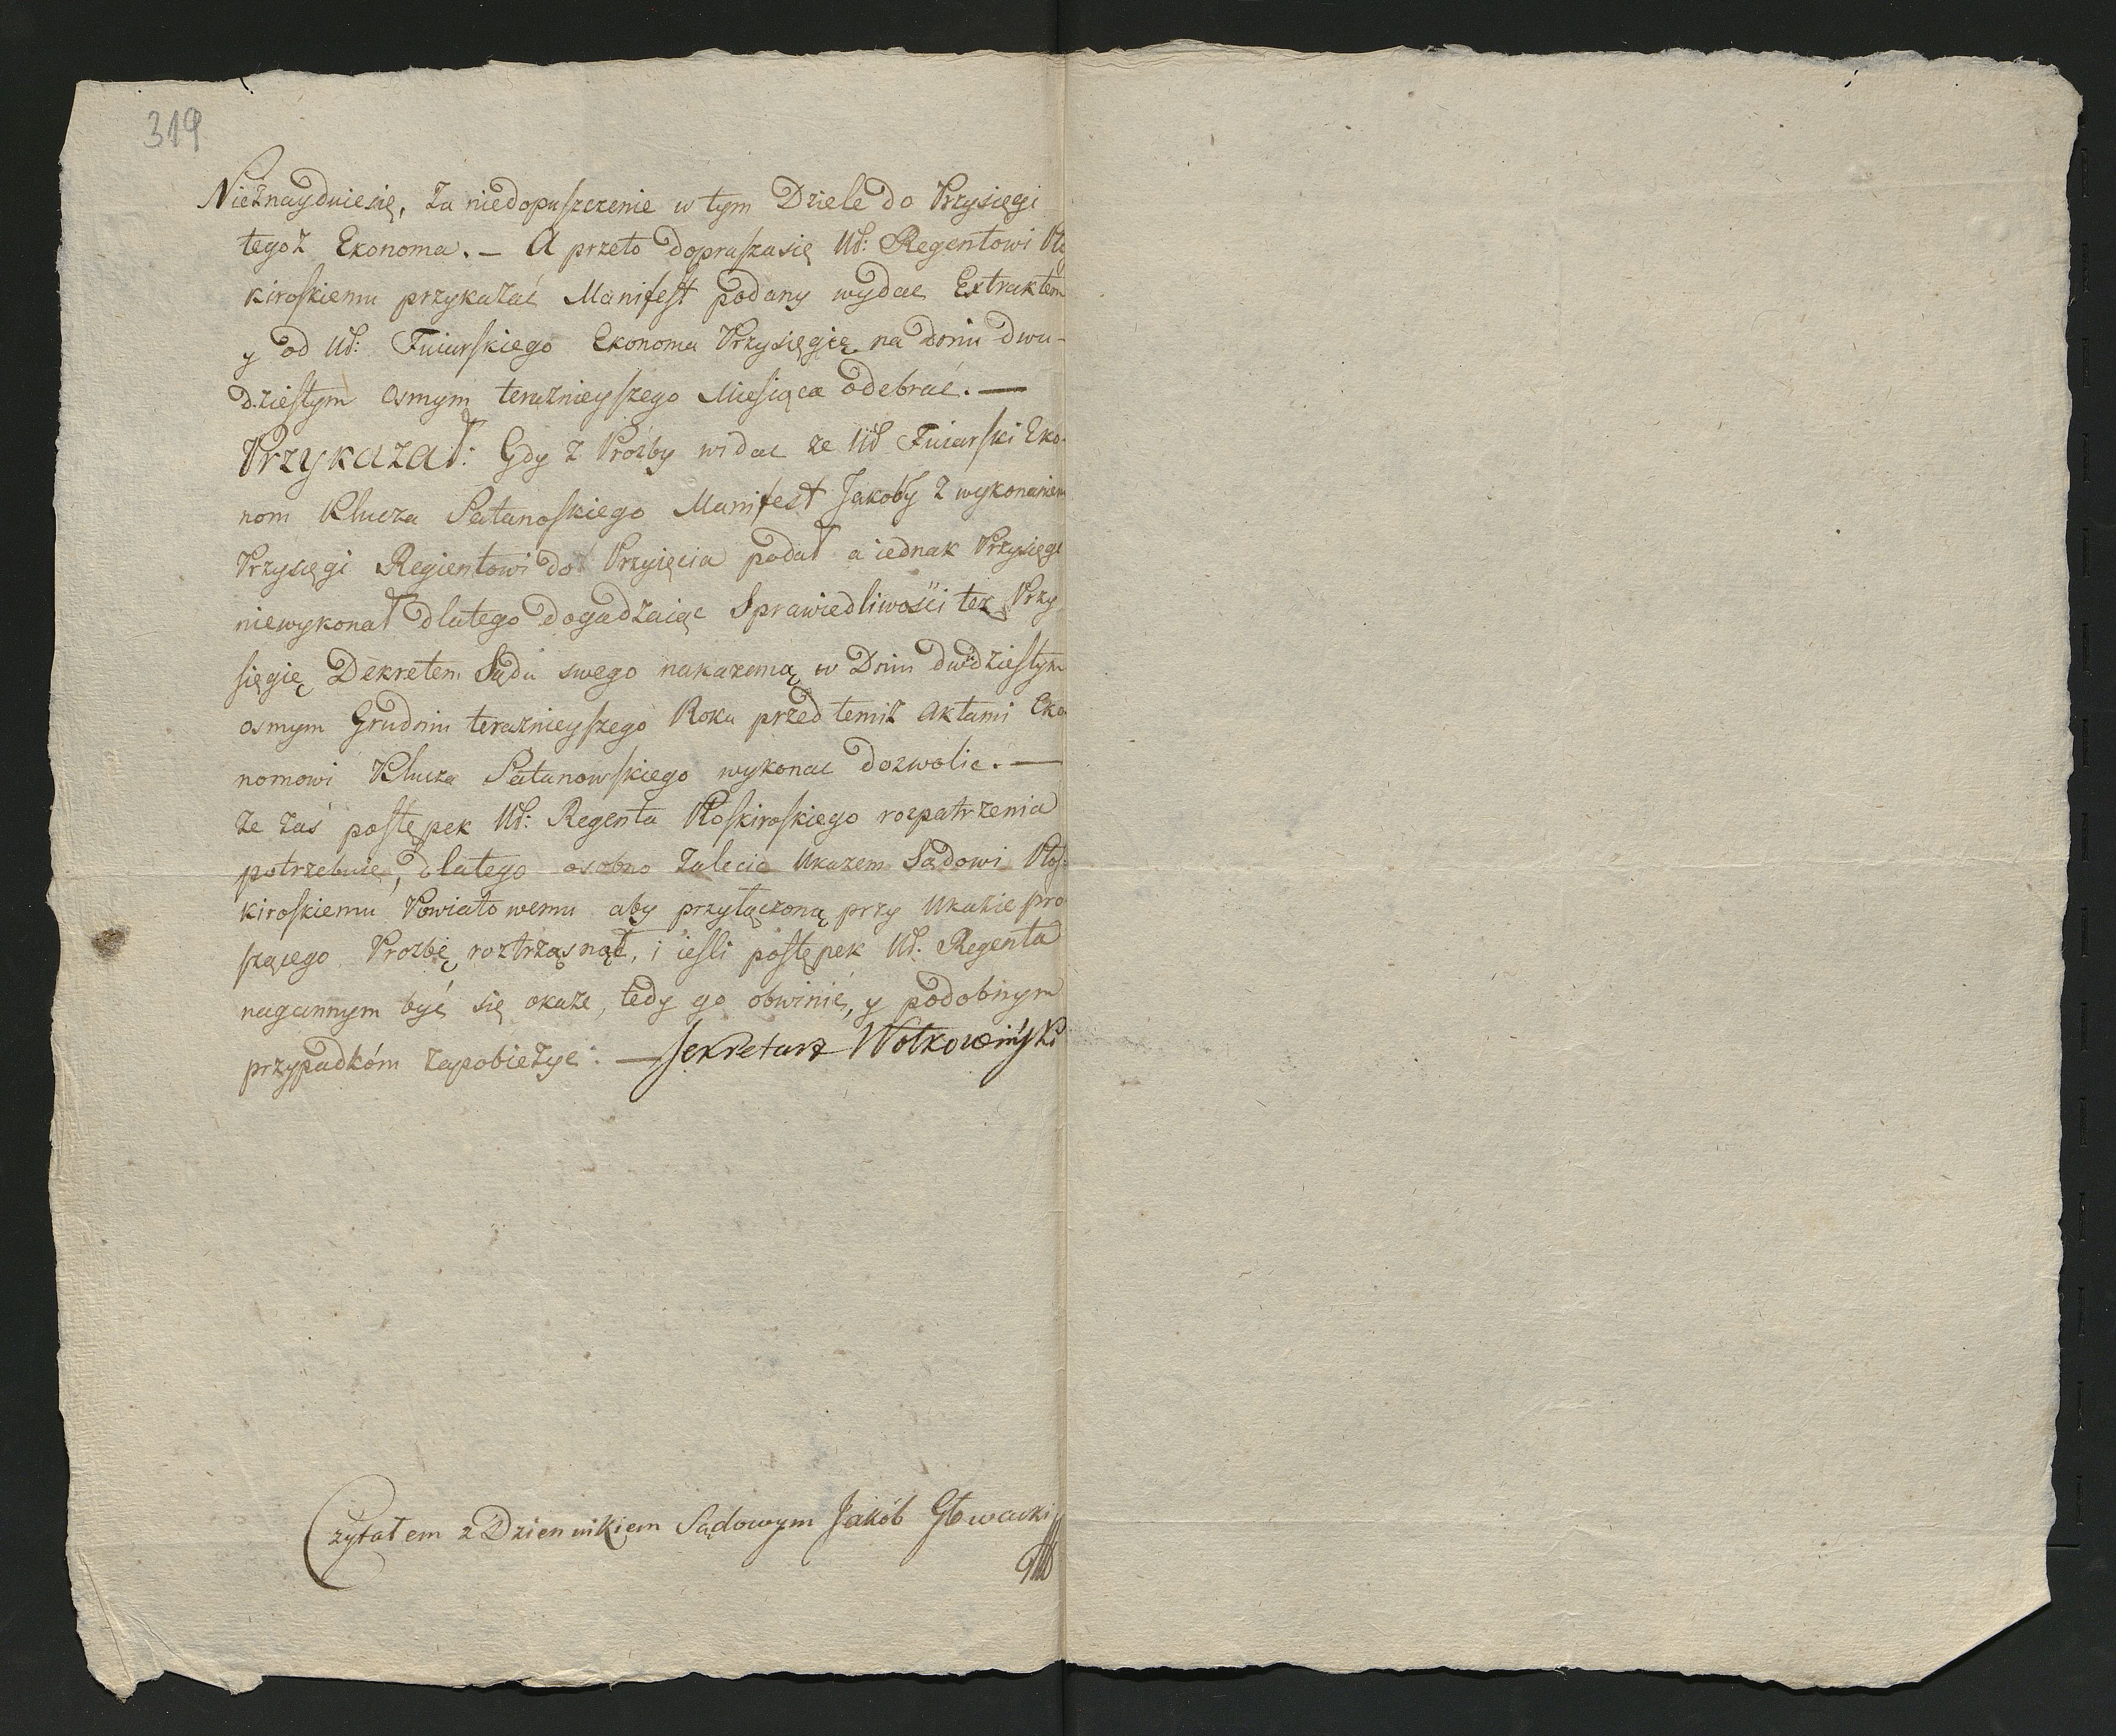 319
Nieżnayduie się, za niedopuszczenie w tym Dziele do Przysięgi
tegoż Ekonoma. — A przeto dopraszasię Uł: Regentowi Pło
kiroskiemu przykazać Manifest podany wydac Extraktem
y od Uł: Fuiarskiego Ekonoma Przysięgię na dniu dwu-
dziestym osmym teraznieyszego Miesiąca odebrać. —
Przykazał: Gdy z Prozby widac ze Uł Fuiarski Eko-
nom Klucza Satanoskiego Manifest Jakoby z wykonaniem
Przysięgi Regientowi do Przyięcia podał a iednak Przysięgi
niewykonał dlatego dogadzaiąc Sprawiedliwości tez Przy
sięgię Dekretem Sądu swego nakazemą w Dniu dwudziestym
osmym Grudniu teraznieyszego Roku przed temiż Aktami Eko
nomowi Klucza Satanowskiego wykonac dozwolic. —
ze zaś postępek Uł: Regenta Płoskiroskiego rozpatrzenia
potrzebuie, dlatego osobno zalecic Ukazem Sądowi Płos
kiroskiemu Powiatowemu aby przyłączoną przy Ukazie pro
szącego Prozbę roztrząsnął, i iesli postępek Uł: Regenta
nagannym być się okaze, tedy go obwinić, y podobnym
przypadkóm zapobieżyc: — Sekretarz Wołkowiński
Czytałem z Dziennikiem Sądowym Jakób Głowacki